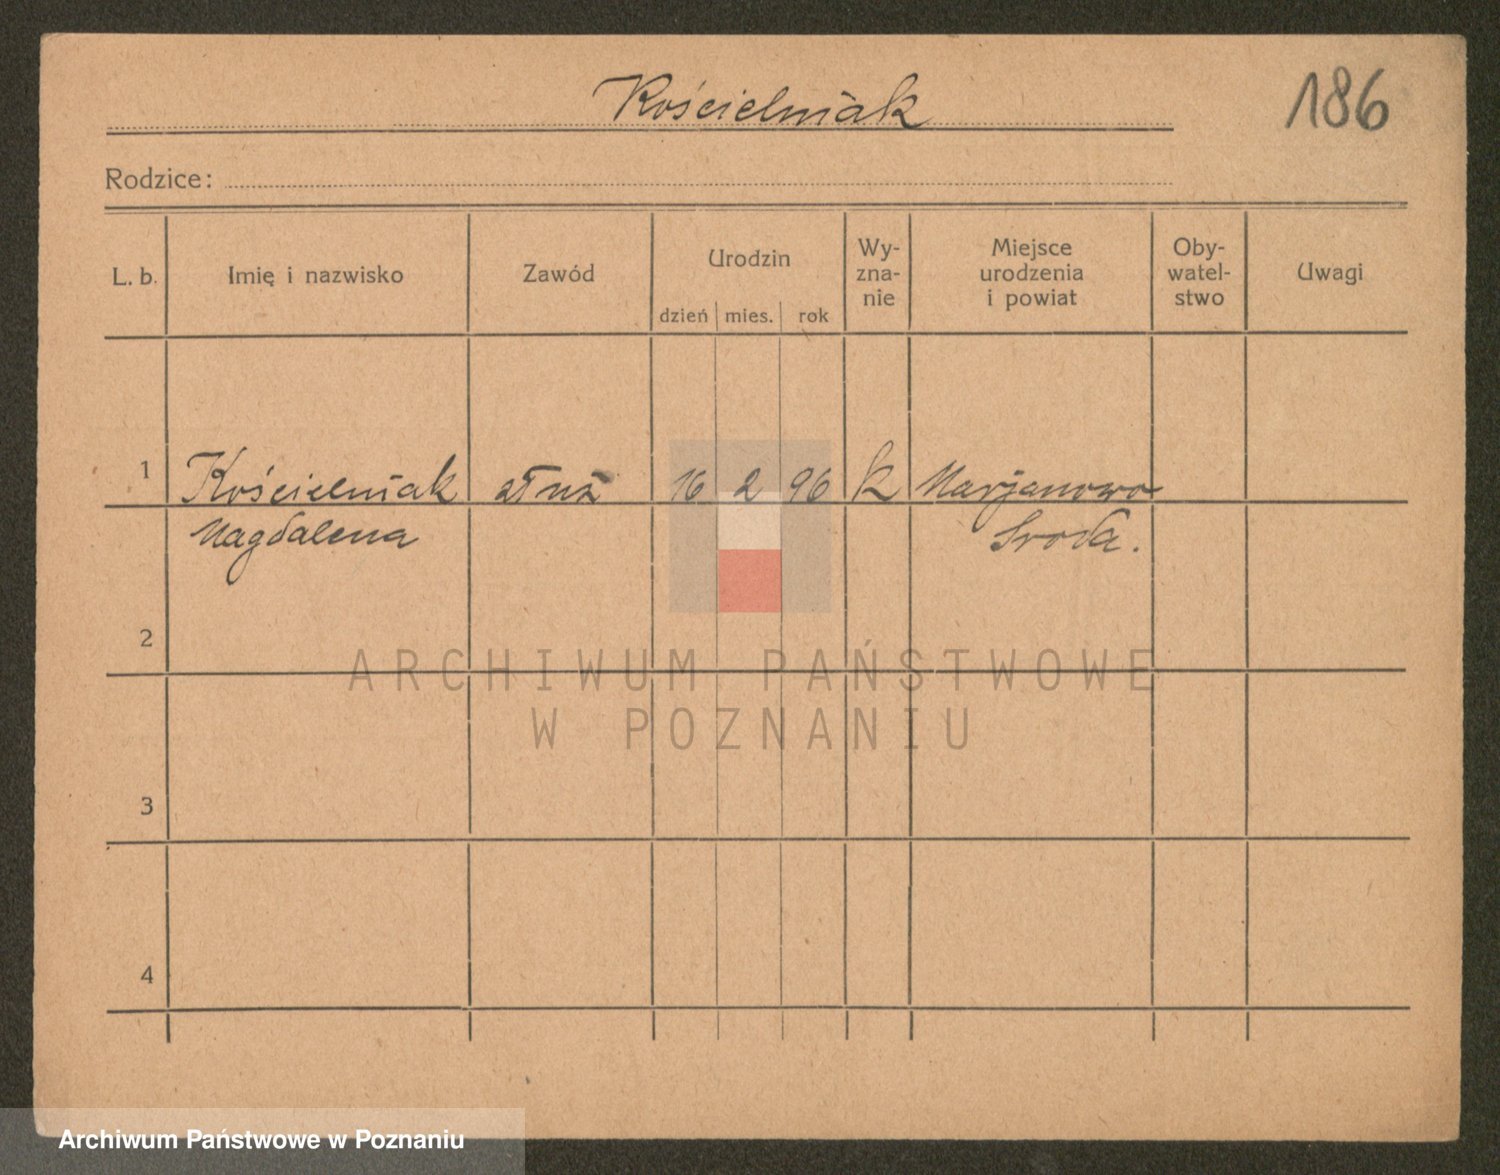 Kościelniak
186
Rodzice:
L. b. Imię i nazwisko Zawód Urodzin dzień mies. rok Wy-zna-nie Miejsce urodzenia i powiat Oby-watel-stwo Uwagi
1 Kościelniak 16 2 96 k Marjanowo
Magdalena Sroda.
2
ARCHIWUM PAŃSTWOWE
W POZNANIU
3
4
Archiwum Państwowe w Poznaniu